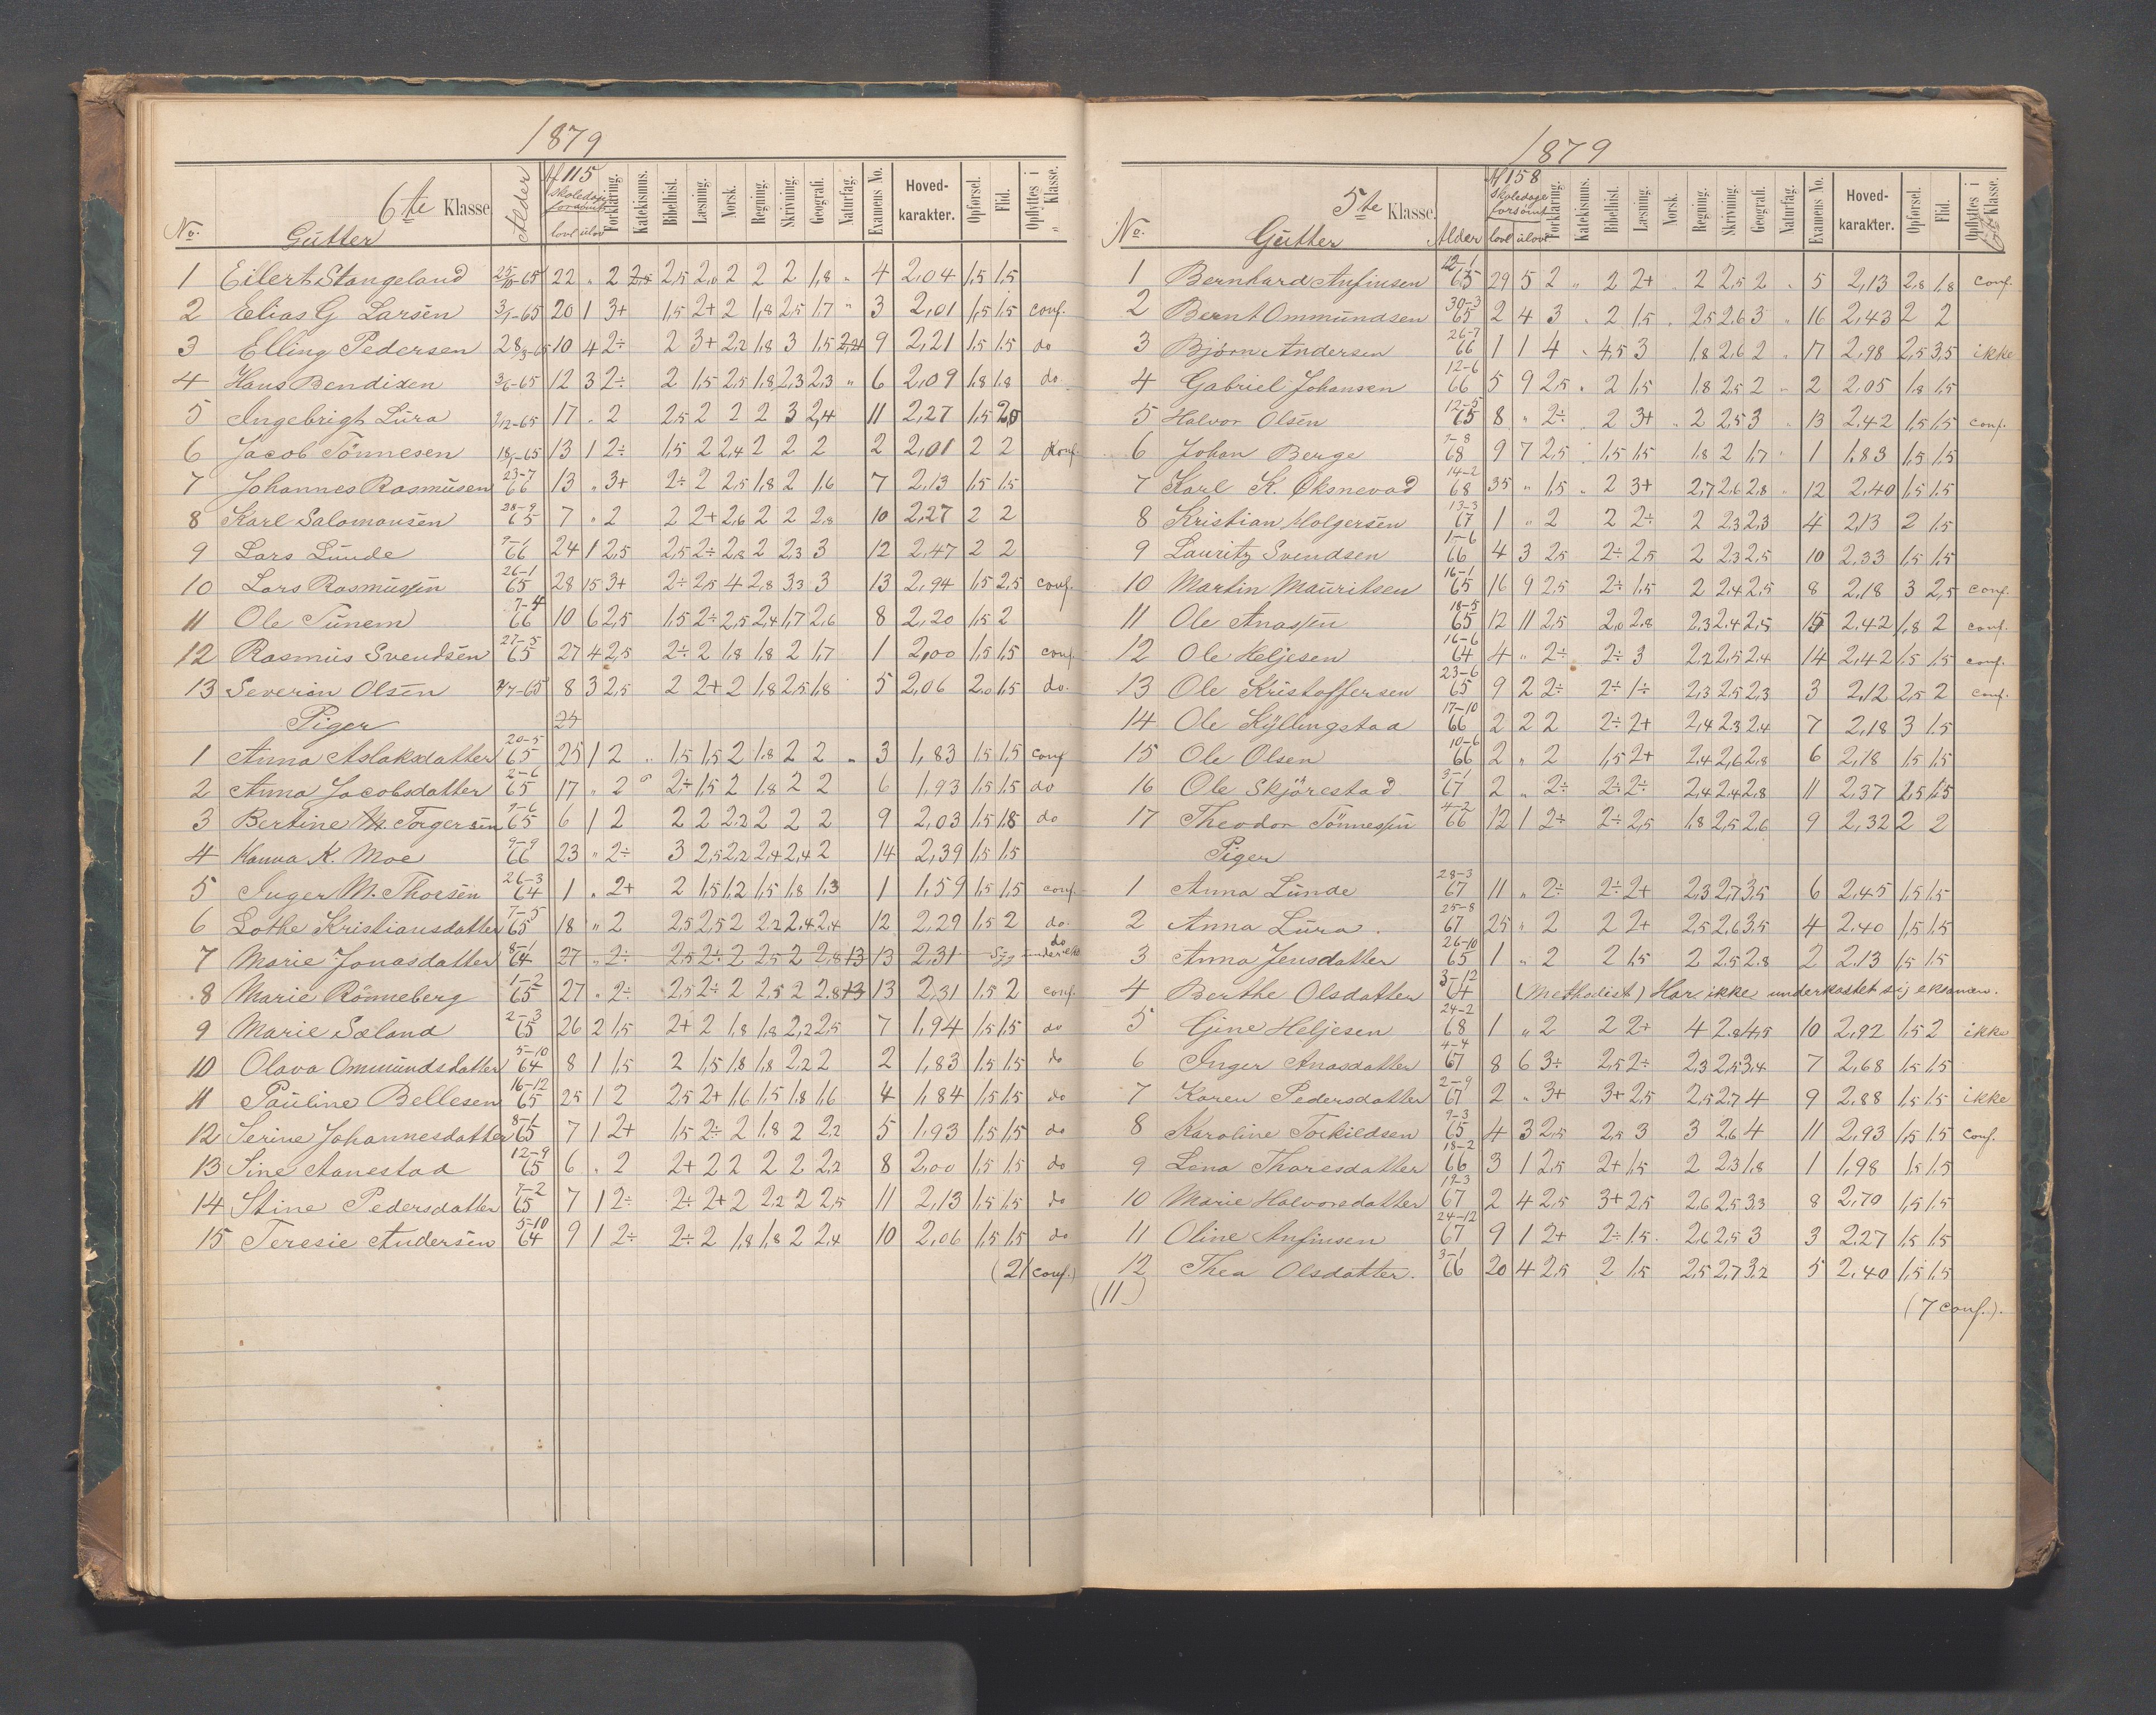 1879
No. 6te Klasse. Alder Af 115 skoledage forsømt lovl. ulovl. Forklaring. Katekismus. Bibelhist. Læsning. Norsk. Regning. Skrivning. Geografi. Naturfag. Examens No. Hoved-karakter. Opførsel. Flid. Opflyttes i „ Klasse.
Gutter
1 Eilert Stangeland 22 „ 2 2,5 2,5 2,0 2 2 2 1,8 „ 4 2,04 1,5 1,5
2 Elias G Larsen 3/1-65 20 1 3+ 1,5 2+ 2 1,8 2,5 1,7 „ 3 2,01 1,5 1,5 conf.
3 Elling Pedersen 10 4 2÷ 2 3+ 2,2 1,8 3 1,5 9 2,21 1,5 1,5 do
4 Hans Bendixen 3/6-65 12 3 2÷ 2 1,5 2,5 1,8 2,3 2,3 „ 6 2,09 1,8 1,8 do.
5 Ingebrigt Lura 17 „ 2 2,5 2 2 2 3 2,4 11 2,27 1,5 2,0
6 Jacob Tönnesen 13 1 2÷ 1,5 2 2,4 2 2 2 2 2,01 2 2 conf.
7 Johannes Rasmusen 23-7 66 13 „ 3+ 2÷ 2 2,5 1,8 2 1,6 7 2,13 1,5 1,5
8 Karl Salomonsen 28-9 65 7 „ 2 2 2+ 2,6 2 2 2,8 10 2,27 2 2
9 Lars Lunde 66 24 1 2,5 2,5 2÷ 2,8 2 2,3 3 12 2,47 2 2
10 Lars Rasmussen 26-1 65 28 15 3+ 2÷ 2,5 4 2,8 3,3 3 13 2,94 1,5 2,5 conf.
11 Ole Tunem 7-4 66 10 6 2,5 1,5 2÷ 2,5 2,4 1,7 2,6 8 2,20 1,5 2
12 Rasmus Svendsen 27-5 65 27 4 2,5 2÷ 2 1,8 1,8 2 1,7 1 2,00 1,5 1,5 conf
13 Severin Olsen 8 3 2,5 2 2+ 2 1,8 2,5 1,8 5 2,06 2,0 1,5 do.
Piger
1 Anna Aslaksdatter 20-5 65 25 1 2 „ 1,5 1,5 2 1,8 2 2 „ 3 1,83 1,5 1,5 conf
2 Anna Jacobsdatter 2-6 65 17 „ 2 2÷ 1,5 2 1,8 2 2 6 1,93 1,5 1,5 do
3 Bertine M. Torgersen 9-6 65 6 1 2 2 2 2,2 2 2 2 9 2,03 1,5 1,8 do
4 Hanna K. Moe 9-9 66 23 „ 2÷ 3 2,5 2,2 2,4 2,4 2 14 2,39 1,5 1,5
5 Inger M. Thorsen 26-3 64 1 „ 2+ 2 1,5 1,2 1,5 1,8 1,3 1 1,59 1,5 1,5 conf
6 Lothe Kristiansdatter 7-5 65 18 „ 2 2,5 2,5 2 2,2 2,4 2,4 12 2,29 1,5 2 do.
7 Marie Jonasdatter 8-1 64 27 „ 2÷ 2,5 2÷ 2 2,5 2 2,8 13 13 2,31 do
8 Marie Rönneberg 1-2 65 27 „ 2÷ 2,5 2÷ 2 2,5 2 2,8 13 13 2,31 1,5 2 conf.
9 Marie Sæland 2-3 65 26 2 1,5 2+ 2 1,8 1,8 2,2 2,5 7 1,94 1,5 1,5 do
10 Olava Ommundsdatter 5-10 64 8 1 1,5 2 1,5 1,8 1,8 2,2 2 2 1,83 1,5 1,5 do
11 Pauline Bellesen 16-12 65 25 1 2 2,5 2+ 1,6 1,5 1,8 1,6 4 1,84 1,5 1,5 do
12 Serine Johannesdatter 8-1 65 7 1 2+ 1,5 2÷ 2 1,8 2 2,2 5 1,93 1,5 1,5 do
13 Sine Aanestad 12-9 65 6 „ 2 2+ 2 2 2 2 2,2 8 2,00 1,5 1,5 do
14 Stine Pedersdatter 7-2 65 7 1 2÷ 2÷ 2+ 2 2,2 2 2,5 11 2,13 1,5 1,5 do
15 Teresie Andersen 5-10 64 9 1 2÷ 2÷ 2 1,8 1,8 2 2,4 10 2,06 1,5 1,5 do
(21 conf.)
1879
No. 5te Klasse. Alder Af 158 skoledage forsømt lovl ulovl Forklaring. Katekismus. Bibelhist. Læsning. Norsk. Regning. Skrivning. Geografi. Naturfag. Examens No. Hoved-karakter. Opførsel. Flid. Opflyttes i 6te Klasse.
Gutter
1 Bernhard Anfinsen 12-1 65 29 5 2 „ 2 2+ „ 2 2,5 2 „ 5 2,13 2,8 1,8 conf.
2 Bernt Ommundsen 30-3 65 2 4 3 „ 2 1,5 „ 2,5 2,6 3 „ 16 2,43 2 2
3 Bjørn Andersen 26-7 66 1 1 4 „ 4,5 3 1,8 2,6 2 „ 17 2,98 2,5 3,5 ikke
4 Gabriel Johansen 12-6 66 5 9 2,5 „ 2 1,5 1,8 2,5 2 „ 2 2,05 1,8 1,5
5 Halvor Olsen 12-5 65 8 „ 2÷ „ 2 3+ „ 2 2,5 3 „ 13 2,42 1,5 1,5 conf.
6 Johan Berge 68 9 7 2,5 1,5 1,5 1,8 2 1,7 „ 1 1,83 1,5 1,5
7 Karl K. Øksnevad 14-2 68 35 „ 1,5 „ 2 3+ 2,7 2,6 2,8 „ 12 2,40 1,5 1,5
8 Kristian Holgersen 13-3 67 1 „ 2 2 2÷ 2 2,3 2,3 4 2,13 2 1,5
9 Lauritz Svendsen 1-6 66 4 3 2,5 2÷ 2,5 2 2,3 2,5 10 2,33 1,5 1,5
10 Martin Mauritsen 16-1 65 16 9 2,5 2÷ 1,5 2 2,4 2,5 8 2,18 3 2,5 conf.
11 Ole Anassen 18-5 65 12 11 2,5 2,0 2,8 2,3 2,4 2,5 15 2,42 1,8 2 conf.
12 Ole Heljesen 16-6 64 4 „ 2÷ 2÷ 3 2,2 2,5 2,4 14 2,42 1,5 1,5 conf.
13 Ole Kristoffersen 23-6 65 9 2 2÷ 2÷ 1÷ 2,3 2,5 2,3 3 2,12 2,5 2 conf.
14 Ole Kyllingstad 17-10 66 2 2 2 2÷ 2+ 2,4 2,3 2,4 7 2,18 3 1,5
15 Ole Olsen 10-6 66 2 „ 2 1,5 2+ 2,4 2,6 2,8 6 2,18 1,5 1,5
16 Ole Skjörestad 3-1 67 2 „ 2÷ 2÷ 2÷ 2,4 2,4 2,8 11 2,37 1,5 1,5
17 Theodor Tönnessen 4-2 66 12 1 2÷ 2÷ 2,5 1,8 2,5 2,6 9 2,32 2 2
Piger
1 Anna Lunde 28-3 67 11 „ 2÷ 2÷ 2+ 2,3 2,7 3,5 6 2,45 1,5 1,5
2 Anna Lura. 25-8 67 25 „ 2 2 2+ 2,5 2,6 3,5 4 2,40 1,5 1,5
3 Anna Jensdatter 26-10 65 1 „ 2 2 1,5 2 2,5 2,8 2 2,13 1,5 1,5
4 Berthe Olsdatter 3-12 64 (Methodist) Har ikke underkastet sig eksamen.
5 Gine Heljesen 24-2 68 1 „ 2 2 2+ 4 2,8 4,5 10 2,92 1,5 2 ikke
6 Inger Anasdatter 4-4 67 8 6 3÷ 2,5 2÷ 2,3 2,5 3,4 7 2,68 1,5 1,5
7 Karen Pedersdatter 2-9 67 2 „ 3+ 3+ 2,5 2,5 2,7 4 9 2,88 1,5 1,5 ikke
8 Karoline Torkildsen 9-3 65 4 3 2,5 2,5 3 3 2,6 4 11 2,93 1,5 1,5 conf.
9 Lena Tharesdatter 18-2 66 3 1 2,5 2+ 1,5 2 2,3 1,8 1 1,98 1,5 1,5
10 Marie Halvorsdatter 19-3 67 2 4 2,5 3+ 2,5 2,6 2,5 3,3 8 2,70 1,5 1,5
11 Oline Anfinsen 24-12 67 9 1 2+ 2÷ 1,5 2,6 2,5 3 3 2,27 1,5 1,5
12 Thea Olsdatter. 3-1 66 20 4 2,5 2 1,5 2,5 2,7 3,2 5 2,40 1,5 1,5
(11)
(7 conf.).